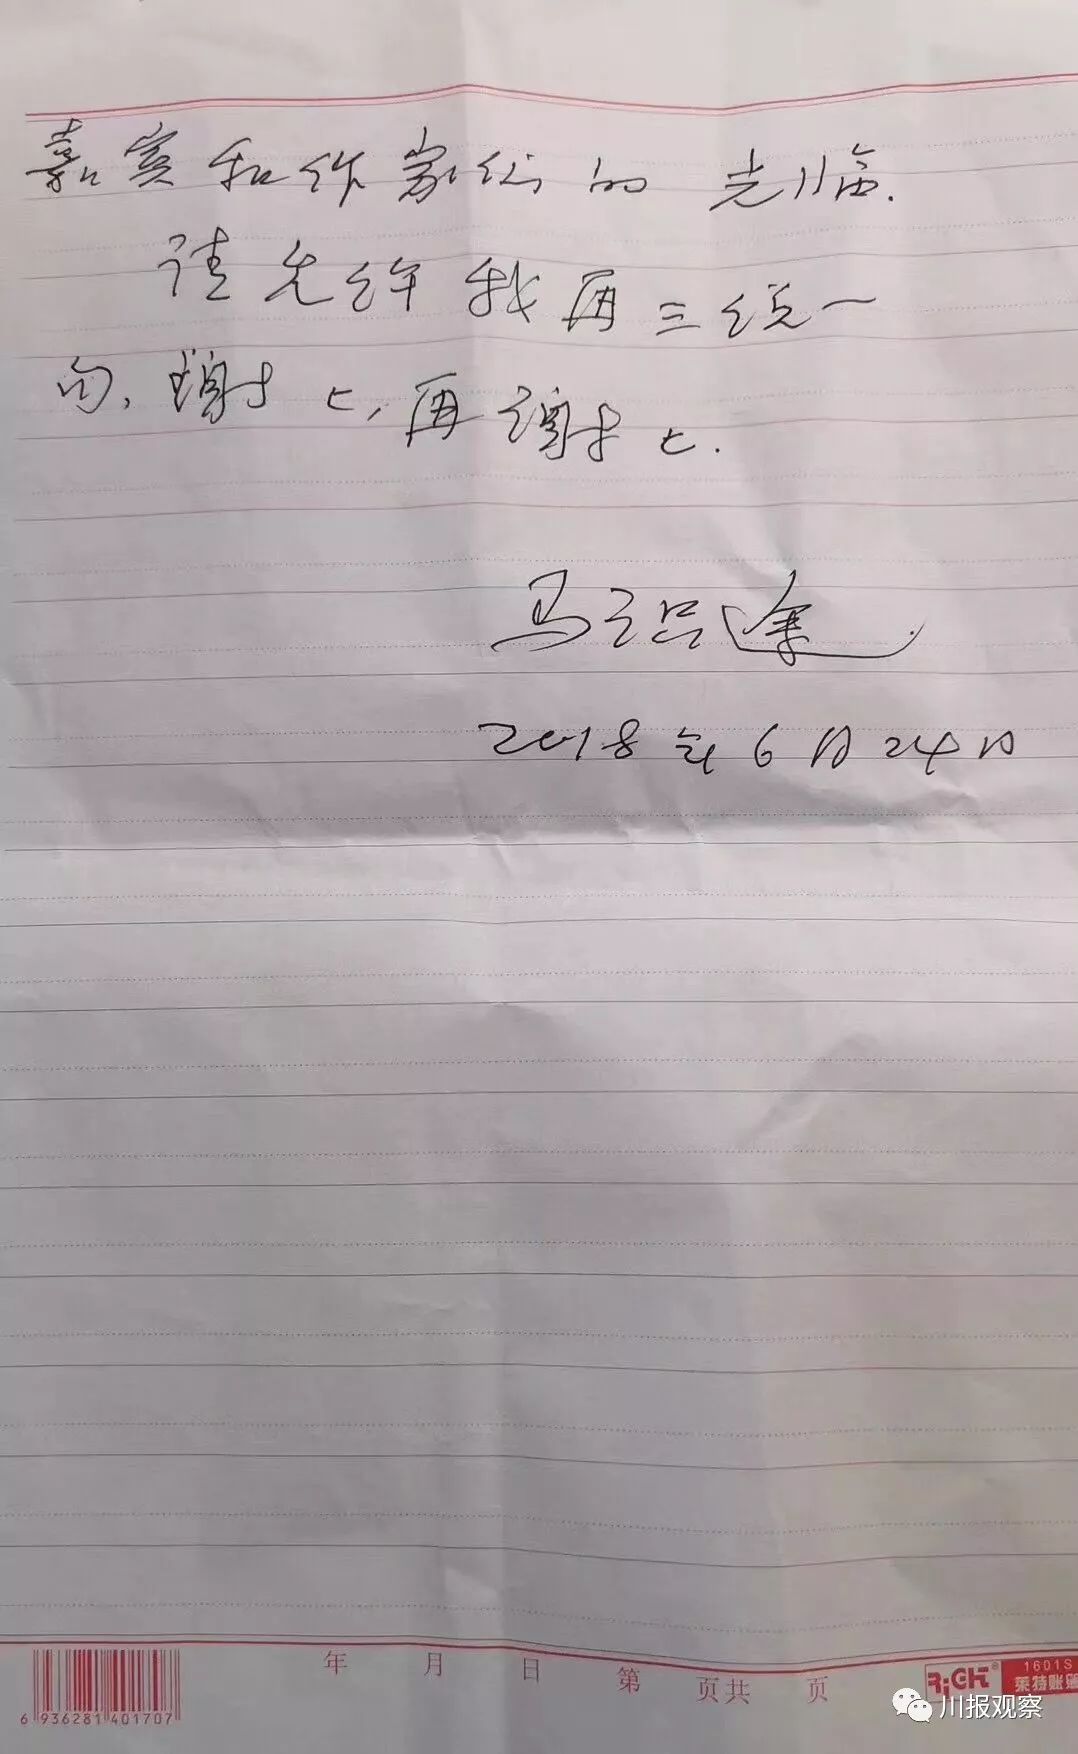 嘉宾和作家们的光临.
请允许我再三说一
句,谢匕,再谢匕.
马识途.
2018年6月24日
年 月 日 第 页共 页
6 936281 401707
RiGHT® 1601S
莱特账簿
川报观察